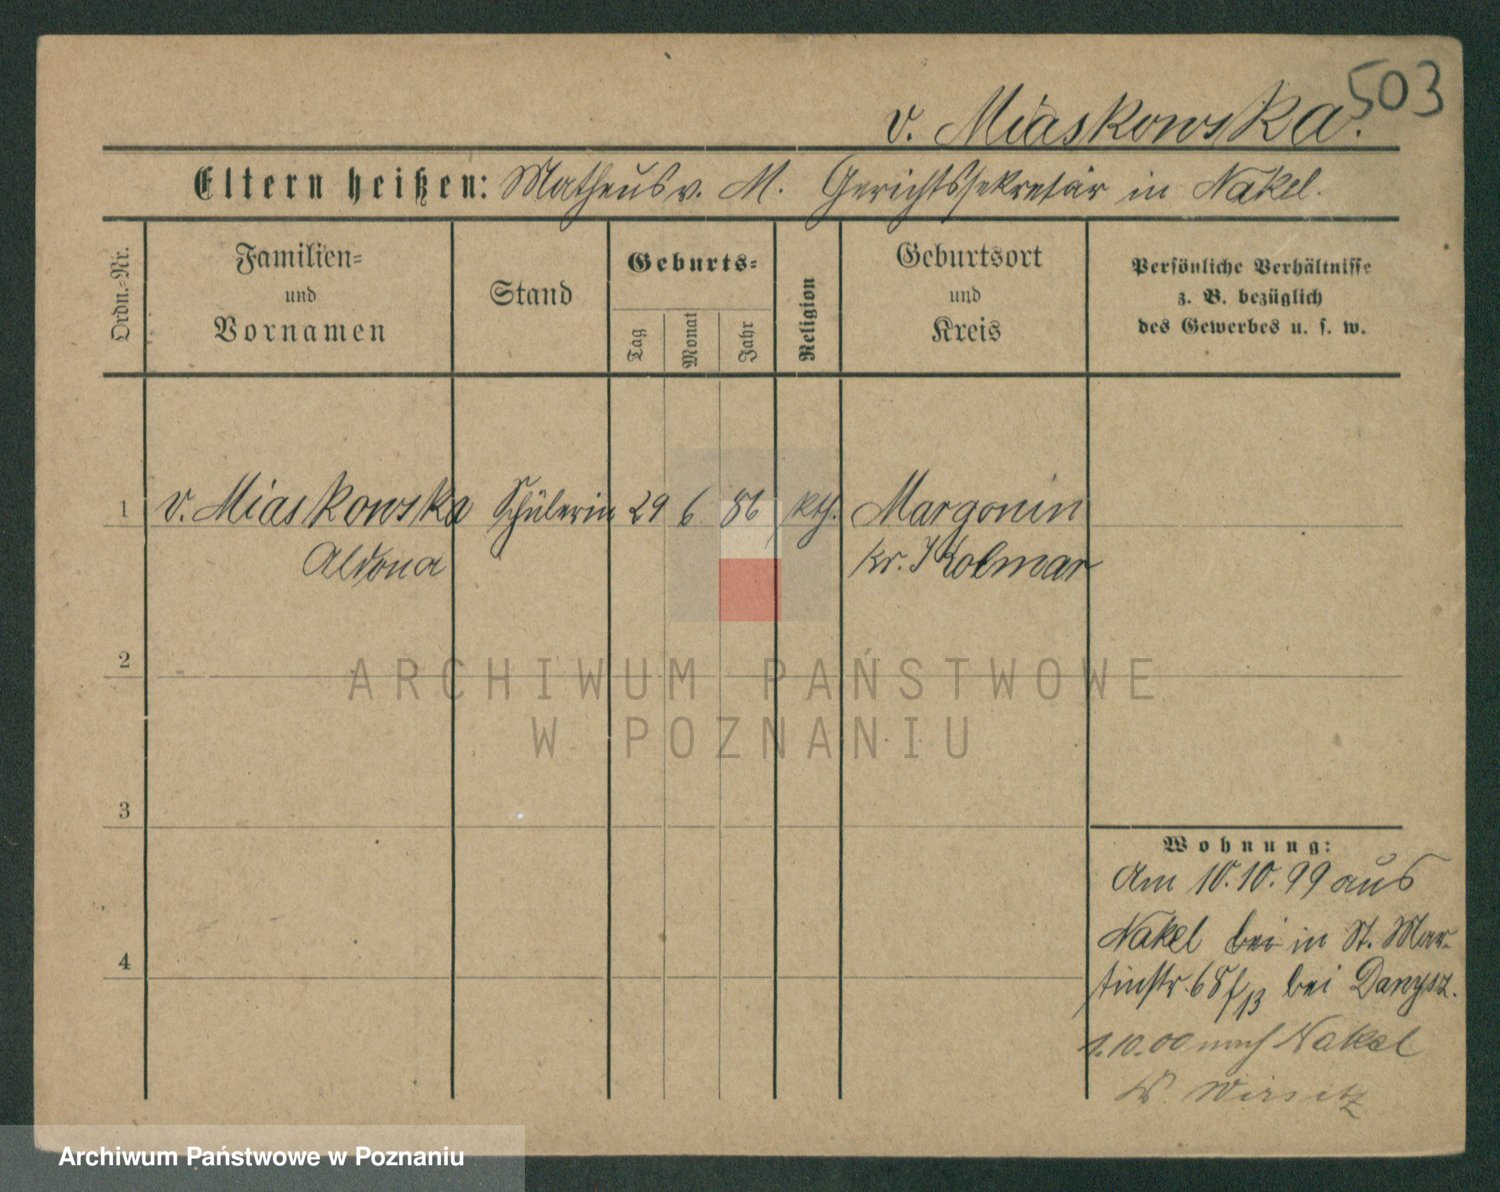 503
v. Miaskowska.
Eltern heißen: Matheus v. M. Gerichtssekretär in Nakel.
Ordn.-Nr.
Familien-
und
Vornamen
Stand
Geburts-
Tag
Monat
Jahr
Religion
Geburtsort
und
Kreis
Persönliche Verhältnisse
z. B. bezüglich
des Gewerbes u. s. w.
1 v. Miaskowska Schülerin 29 6. 86 kth. Margonin
Aldona Kr. Kolmar
2
ARCHIWUM PAŃSTWOWE
W POZNANIU
3
Wohnung:
Am 10.10.99 aus
Nakel bei in St. Mar-
tinstr. 68 bei Danysz.
1.10.00 nach Nakel
Wirsitz
4
Archiwum Państwowe w Poznaniu